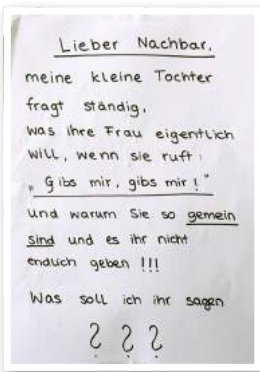 Lieber Nachbar,
meine kleine Tochter
fragt ständig,
was ihre Frau eigentlich
will, wenn sie ruft:
"Gibs mir, gibs mir!"
und warum Sie so gemein
sind und es ihr nicht
endlich geben !!!
Was soll ich ihr sagen
???